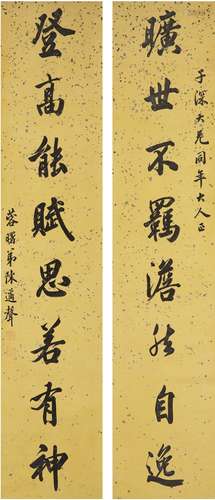 曠世不羈澹然自逸
子深大兄同年大人正
登高能賦思若有神
蓉曙弟陳遹聲